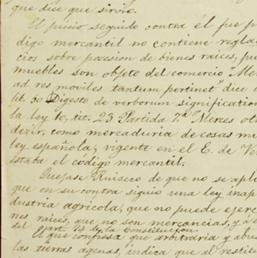 que dice que sirvio.
El juicio seguido contra él fue p
digo mercantil no contiene regla
cios sobre posesion de bienes raices, pu
muebles son objeto del comercio Me
ad res moviles tantum pertinet dice
tit. 30 Digesto de verborum signification
la ley 10, tit. 23 Partida 7ª Merces ot
decir, como mercaduria de cosas m
ley española; vigente en el E. de V
estaba el código mercantil.
Quejase Ruiseco de que no se apl
que en su contra siguio una ley inap
dustria agricola; que no puede ejer
nes raices, que no son mercancias, y
del part. 13 de la Constitucion.
El que confiesa que arbitraria y abu
las tierras agenas, indica que el restit